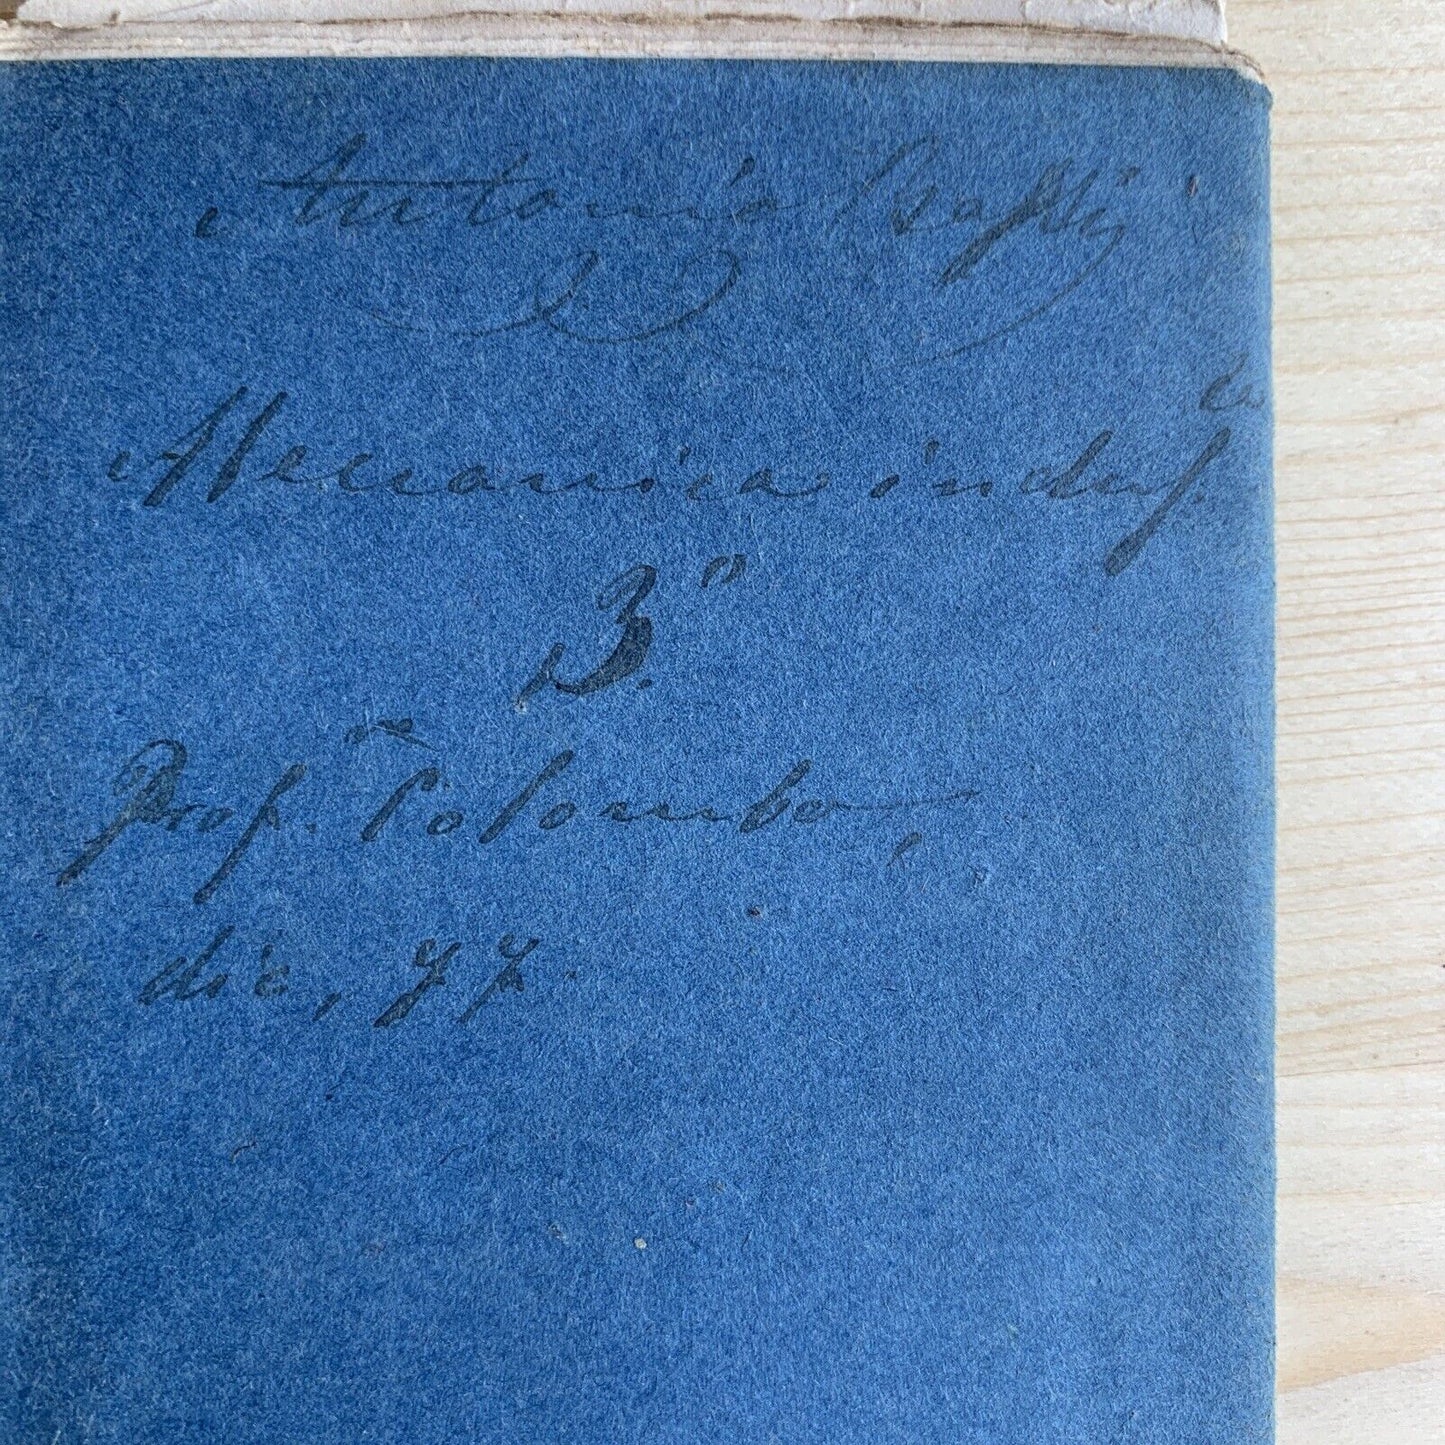 Antonio
Meccanica indus.le
3.
Prof. Colombo,
dic, 77.